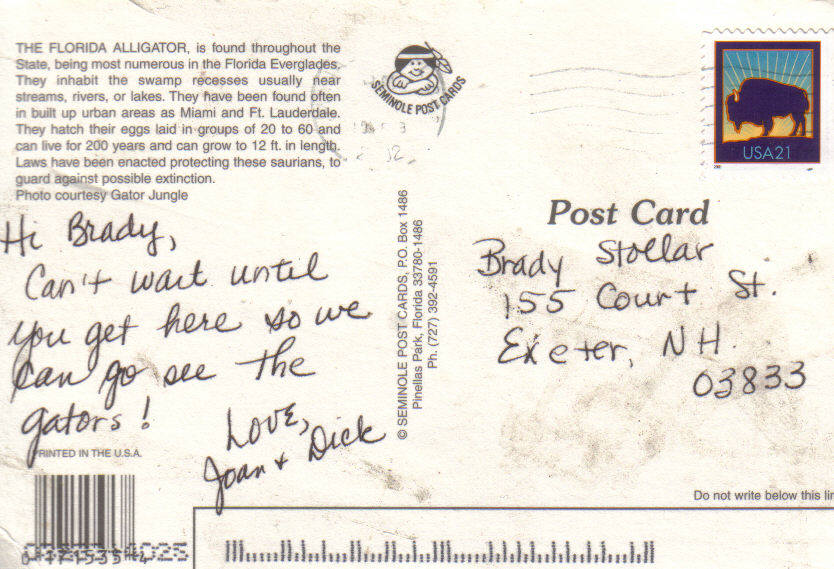 THE FLORIDA ALLIGATOR, is found throughout the
State, being most numerous in the Florida Everglades.
They inhabit the swamp recesses usually near
streams, rivers, or lakes. They have been found often
in built up urban areas as Miami and Ft. Lauderdale.
They hatch their eggs laid in groups of 20 to 60 and
can live for 200 years and can grow to 12 ft. in length.
Laws have been enacted protecting these saurians, to
guard against possible extinction.
Photo courtesy Gator Jungle
SEMINOLE POST CARDS
USA21
Hi Brady,
Can't wait until
you get here so we
can go see the
gators!
Love,
Joan + Dick
PRINTED IN THE U.S.A.
© SEMINOLE POST CARDS, P.O. Box 1486
Pinellas Park, Florida 33780-1486
Ph. (727) 392-4591
Post Card
Brady Stollar
155 Court St.
Exeter, NH.
03833
Do not write below this